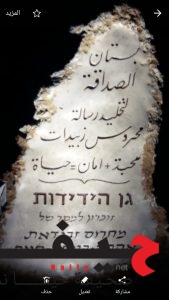 المزيد
بستان
الصداقة
لتخليد رسالة
محروس زبيدات
محبة + امان = حياة
גן הידידות
זכרון למסר של
מחרוס זבידאת
net
مشاركة
تعديل
حذف